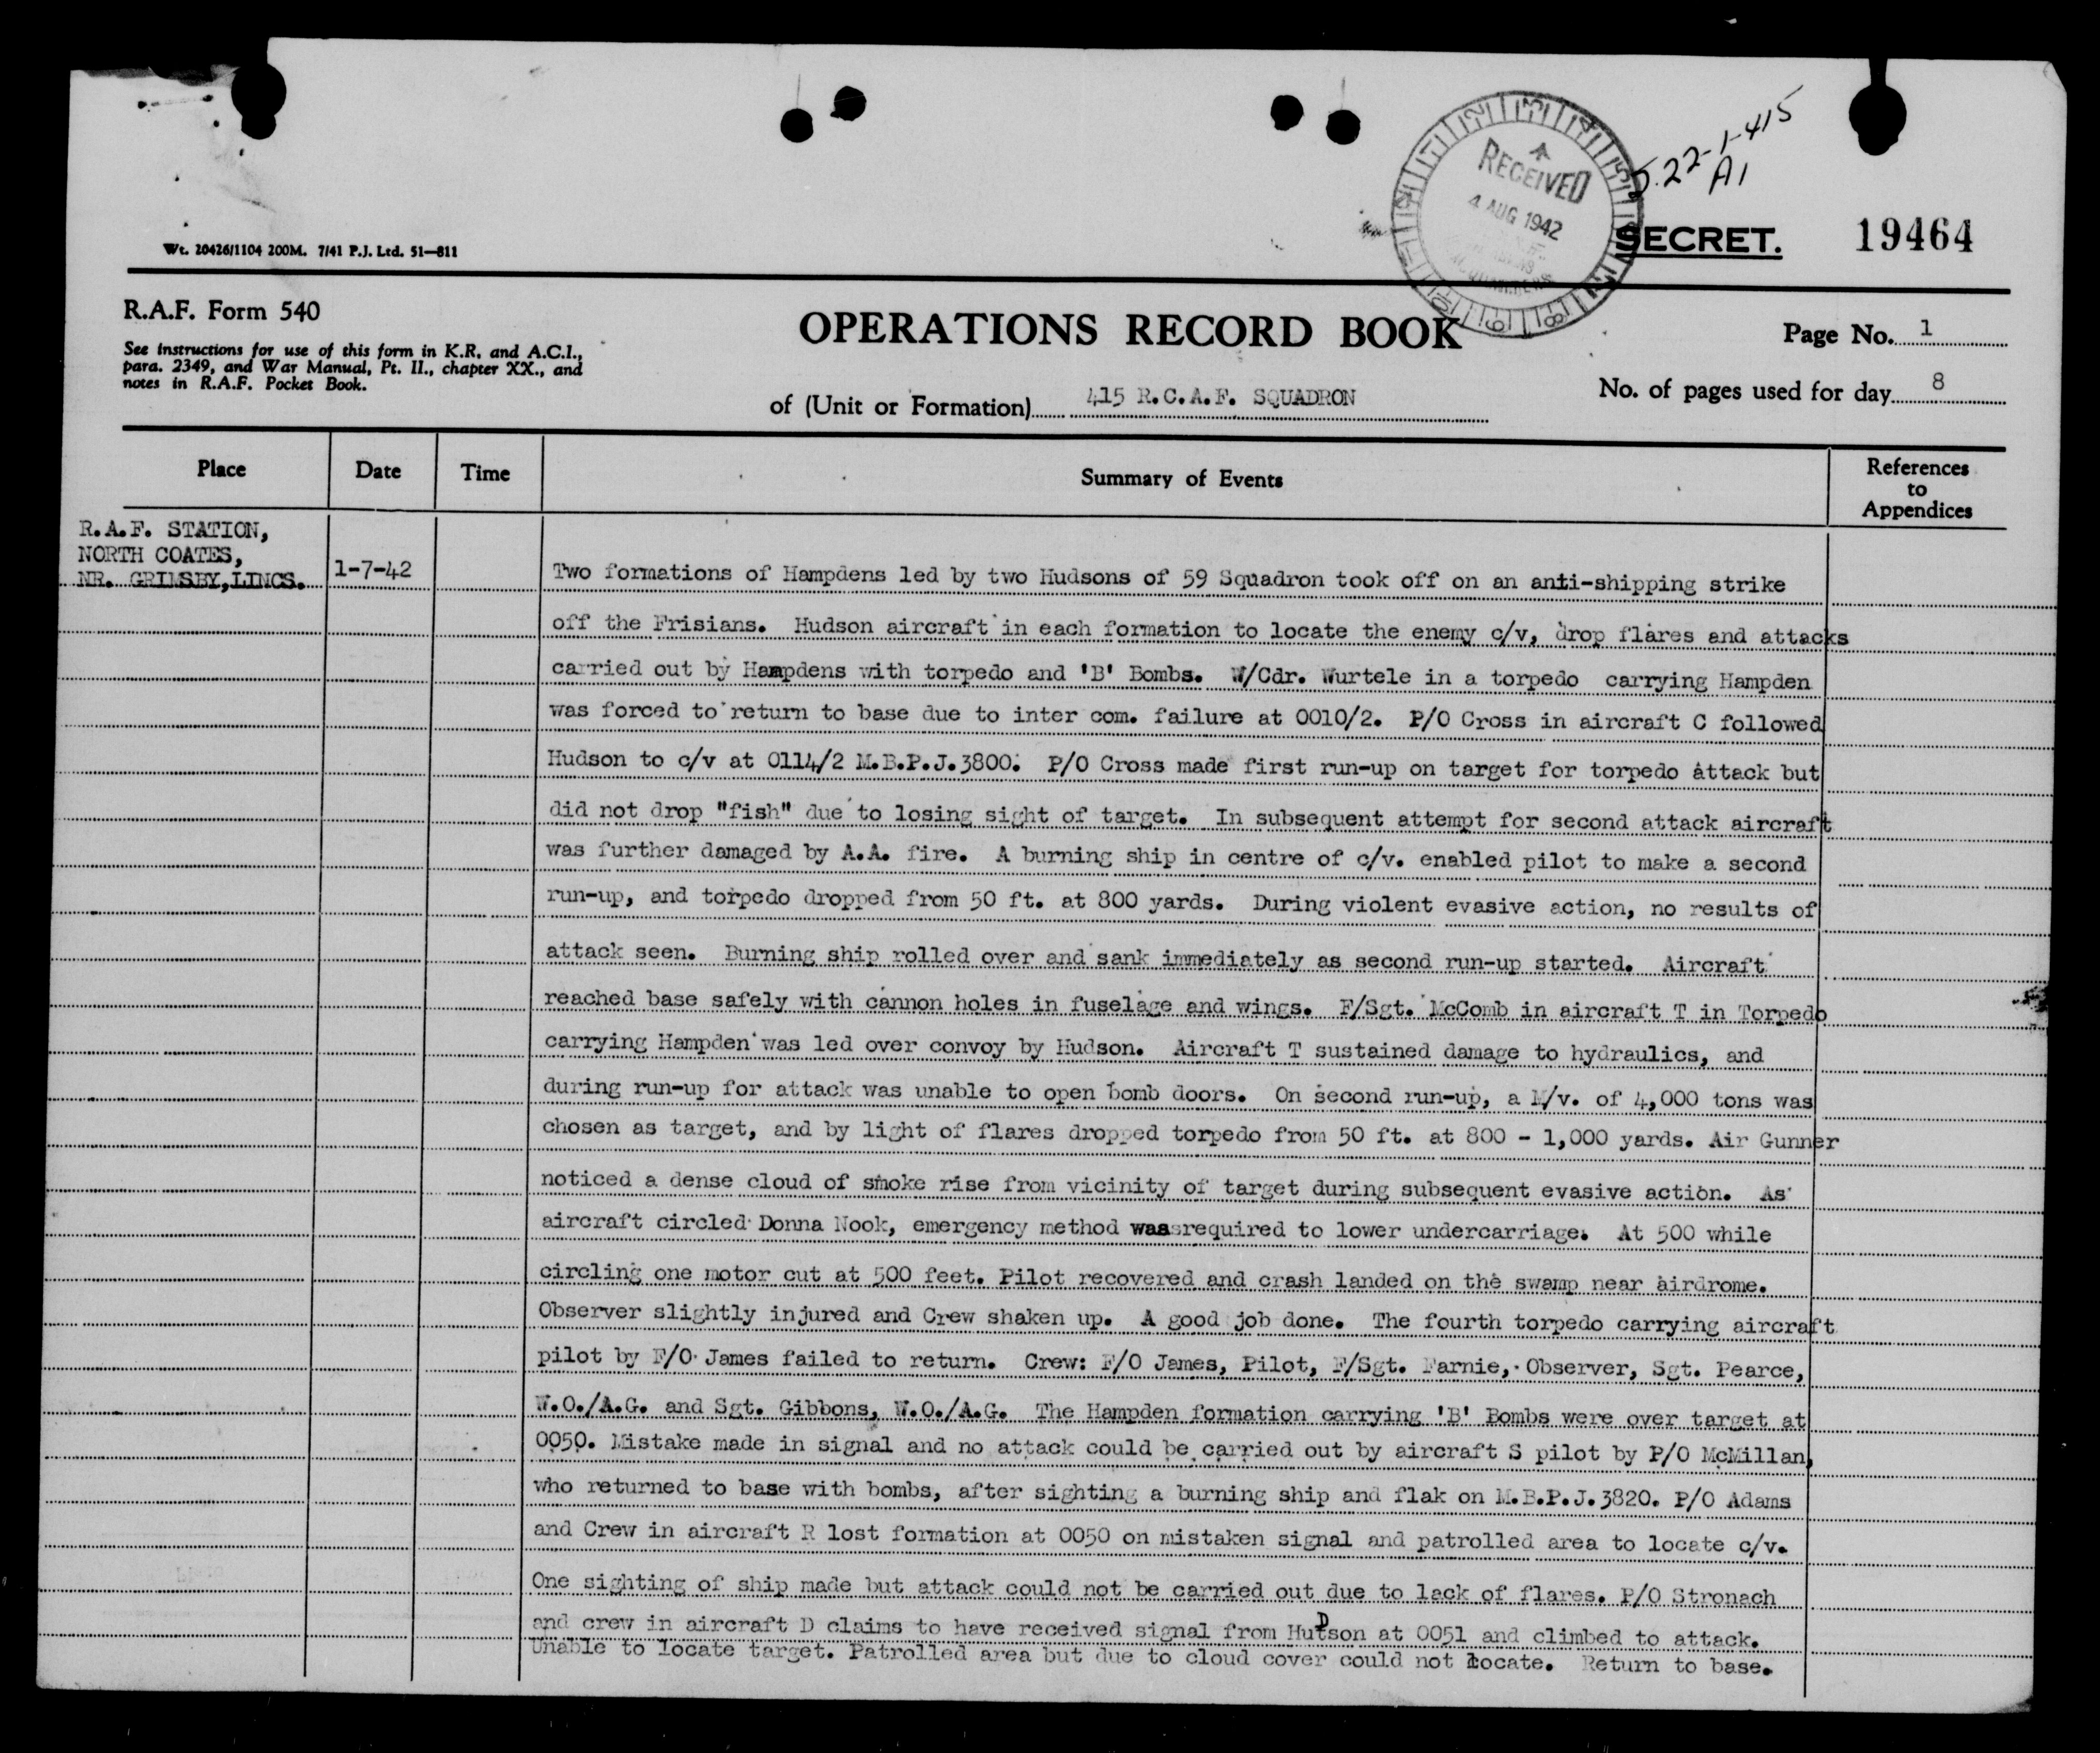 5.22-1-415
A1
RECEIVED
4 AUG 1942
SECRET.
19464
Wt. 20426/1104 200M. 7/41 P.J. Ltd. 51—811
R.A.F. Form 540
See instructions for use of this form in K.R. and A.C.I.,
para. 2349, and War Manual, Pt. II., chapter XX., and
notes in R.A.F. Pocket Book.
OPERATIONS RECORD BOOK
of (Unit or Formation) 415 R.C.A.F. SQUADRON
Page No. 1
No. of pages used for day 8
Place
Date
Time
Summary of Events
References
to
Appendices
R.A.F. STATION,
NORTH COATES,
NR. GRIMSBY,LINCS.
1-7-42
Two formations of Hampdens led by two Hudsons of 59 Squadron took off on an anti-shipping strike
off the Frisians. Hudson aircraft in each formation to locate the enemy c/v, drop flares and attacks
carried out by Hampdens with torpedo and 'B' Bombs. W/Cdr. Wurtele in a torpedo carrying Hampden
was forced to return to base due to inter com. failure at 0010/2. P/O Cross in aircraft C followed
Hudson to c/v at 0114/2 M.B.P.J.3800. P/O Cross made first run-up on target for torpedo attack but
did not drop "fish" due to losing sight of target. In subsequent attempt for second attack aircraft
was further damaged by A.A. fire. A burning ship in centre of c/v. enabled pilot to make a second
run-up, and torpedo dropped from 50 ft. at 800 yards. During violent evasive action, no results of
attack seen. Burning ship rolled over and sank immediately as second run-up started. Aircraft
reached base safely with cannon holes in fuselage and wings. F/Sgt. McComb in aircraft T in Torpedo
carrying Hampden was led over convoy by Hudson. Aircraft T sustained damage to hydraulics, and
during run-up for attack was unable to open bomb doors. On second run-up, a M/v. of 4,000 tons was
chosen as target, and by light of flares dropped torpedo from 50 ft. at 800 - 1,000 yards. Air Gunner
noticed a dense cloud of smoke rise from vicinity of target during subsequent evasive action. As
aircraft circled Donna Nook, emergency method waasrequired to lower undercarriage. At 500 while
circling one motor cut at 500 feet. Pilot recovered and crash landed on the swamp near airdrome.
Observer slightly injured and Crew shaken up. A good job done. The fourth torpedo carrying aircraft
pilot by F/O James failed to return. Crew: F/O James, Pilot, F/Sgt. Farnie, Observer, Sgt. Pearce,
W.O./A.G. and Sgt. Gibbons, W.O./A.G. The Hampden formation carrying 'B' Bombs were over target at
0050. Mistake made in signal and no attack could be carried out by aircraft S pilot by P/O McMillan,
who returned to base with bombs, after sighting a burning ship and flak on M.B.P.J.3820. P/O Adams
and Crew in aircraft R lost formation at 0050 on mistaken signal and patrolled area to locate c/v.
One sighting of ship made but attack could not be carried out due to lack of flares. P/O Stronach
and crew in aircraft D claims to have received signal from Hudson at 0051 and climbed to attack.
Unable to locate target. Patrolled area but due to cloud cover could not locate. Return to base.